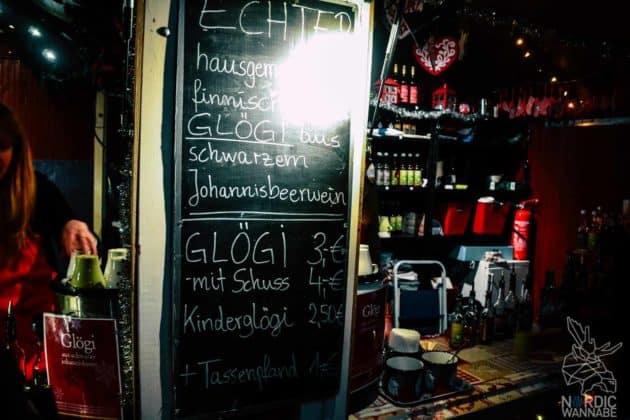 ECHTER
hausgem
finnisch
GLÖGI aus
schwarzem
Johannisbeerwein
GLÖGI 3,-€
-mit Schuss 4,-€
Kinderglögi 2,50€
+ Tassenpfand 1€
Glögi
aus schwarzem
Johannisbeerwein
Glögi
NORDIC
WANNABE